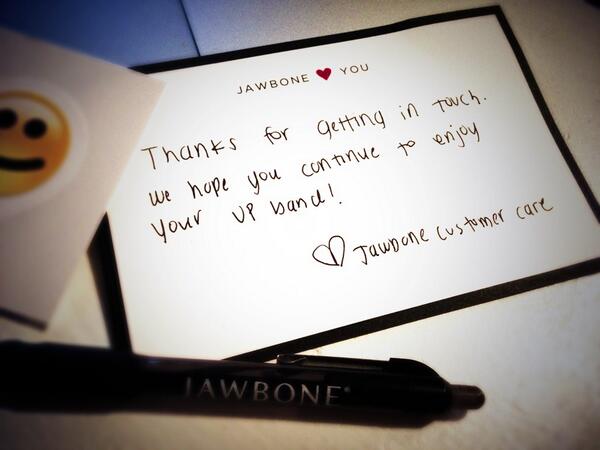 JAWBONE ♥ YOU
Thanks for getting in touch.
we hope you continue to enjoy
your UP band!
♡ Jawbone customer care
JAWBONE®